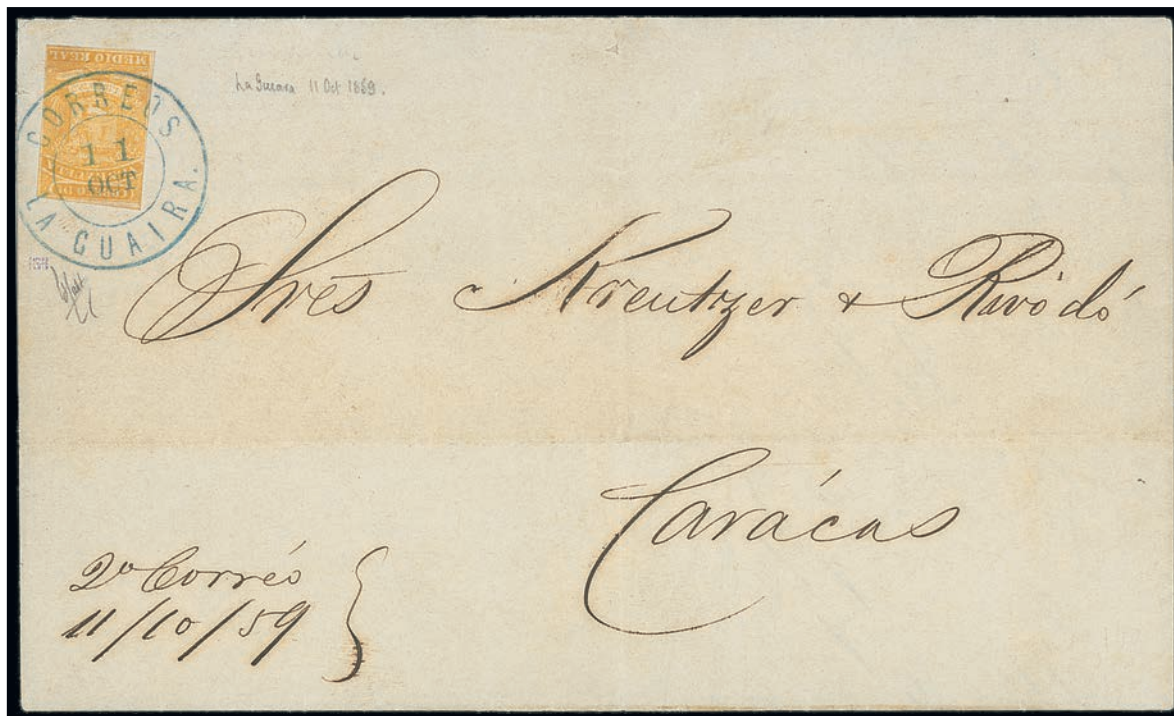 MEDIO REAL
CORREOS
11
OCT
LA GUAIRA.
La Guaira 11 Oct 1869.
154
Sres Kreutzer & Rivodó
Carácas
2º Corréo
11/10/59